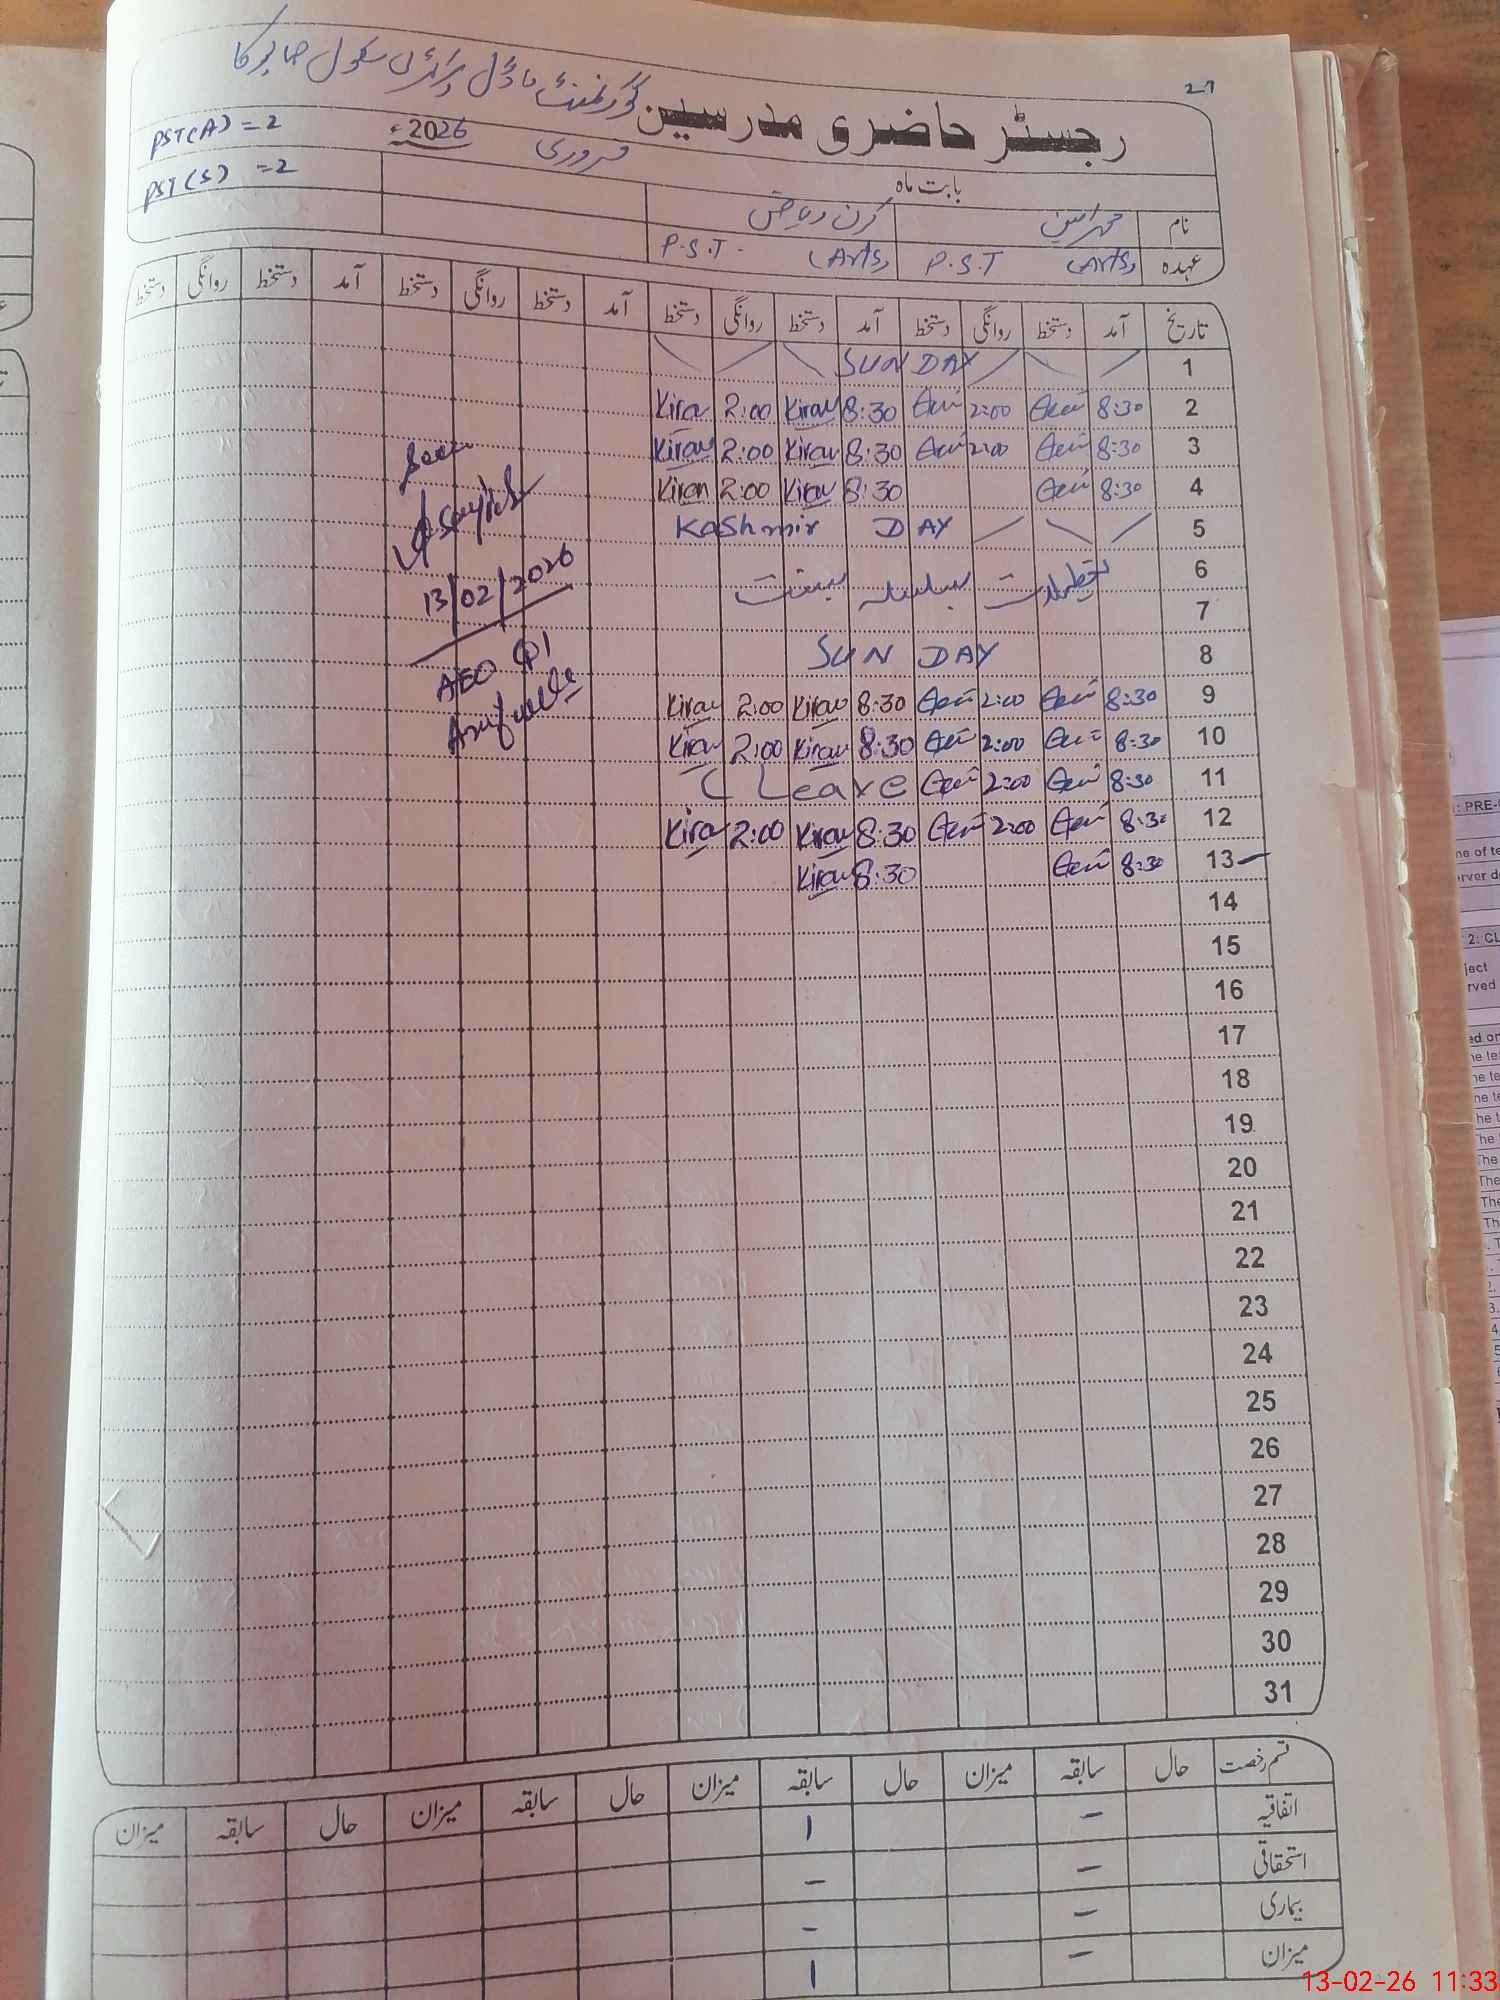 27
گورنمنٹ ماڈل پرائمری سکول
رجسٹر حاضری مدرسین
PST(A) = 2
PST(S) = 2
بابت ماہ فروری 2026ء
نام محمد امین کرن ریاض
عہدہ (Arts) P.S.T (Arts) P.S.T.
تاریخ آمد دستخط روانگی دستخط آمد دستخط روانگی دستخط آمد دستخط روانگی دستخط آمد دستخط روانگی دستخط
1 SUNDAY
2 8:30 2:00 8:30 Kiran 2:00 Kiran
3 8:30 2:00 8:30 Kiran 2:00 Kiran
4 8:30 8:30 Kiran 2:00 Kiran
5 Kashmir DAY
6 تعطیلات بسلسلہ بسنت
7
8 SUNDAY
9 8:30 2:00 8:30 Kiran 2:00 Kiran
10 8:30 2:00 8:30 Kiran 2:00 Kiran
11 8:30 2:00 C Leave
12 8:30 2:00 8:30 Kiran 2:00 Kiran
13 8:30 8:30 Kiran
14
15
16
17
18
19
20
21
22
23
24
25
26
27
28
29
30
31
Seen
13/02/2026
AEO
قسم رخصت حال سابقہ میزان حال سابقہ میزان حال سابقہ میزان حال سابقہ میزان
اتفاقیہ - 1
استحقاقی - -
بیماری - -
میزان - 1
13-02-26 11:33